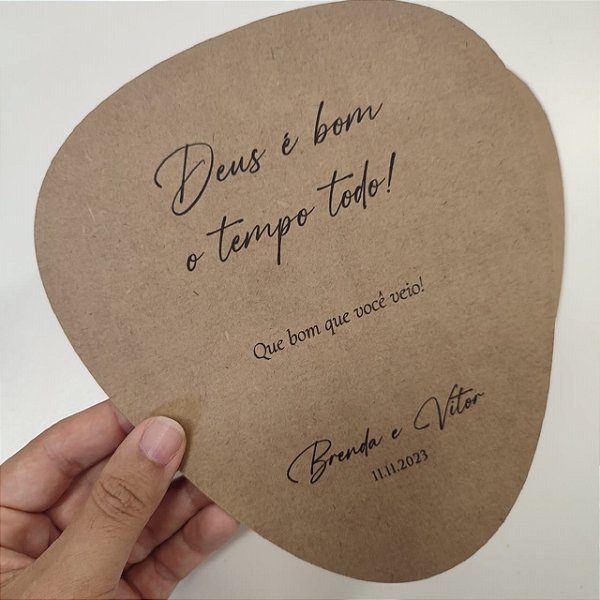 Deus é bom
o tempo todo!
Que bom que você veio!
Brenda e Vitor
11.11.2023